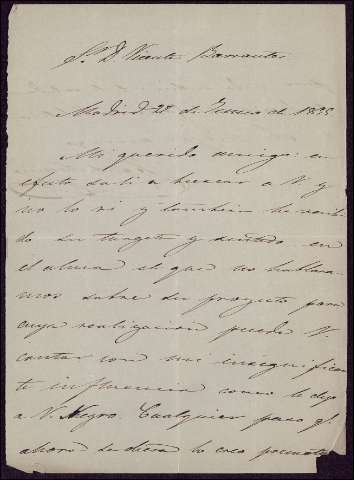 Sr. D. Vicente Barrantes
Madrid 28 de Enero de 18
Mi querido amigo: en
efecto salí a buscar a V. y
no lo vi y tambien he recibi
do su targeta y sentido en
el alma el que no hablara
mos sobre su proyecto para
cuya realizacion puede V.
contar con mi insignifican
te influencia como le dejo
a V. Negro. Cualquier paso q.
ahora se diera lo creo